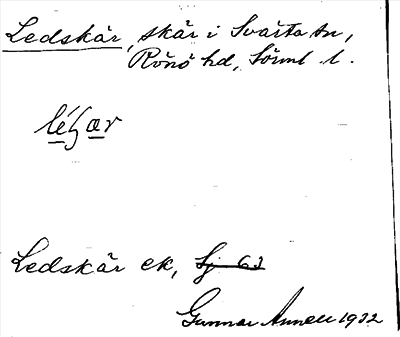 Ledskär, skär i Svärta sn,
Rönö hd, Sörml. l.
Ledskär ek, Sj 63
Gunnar Annell 1932